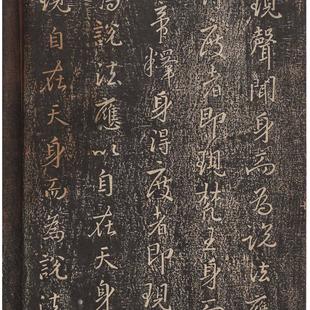 現聲聞身而為說法應
得度者即現梵王身而
帝釋身得度者即現
為說法應以自在天身
現自在天身而為說法